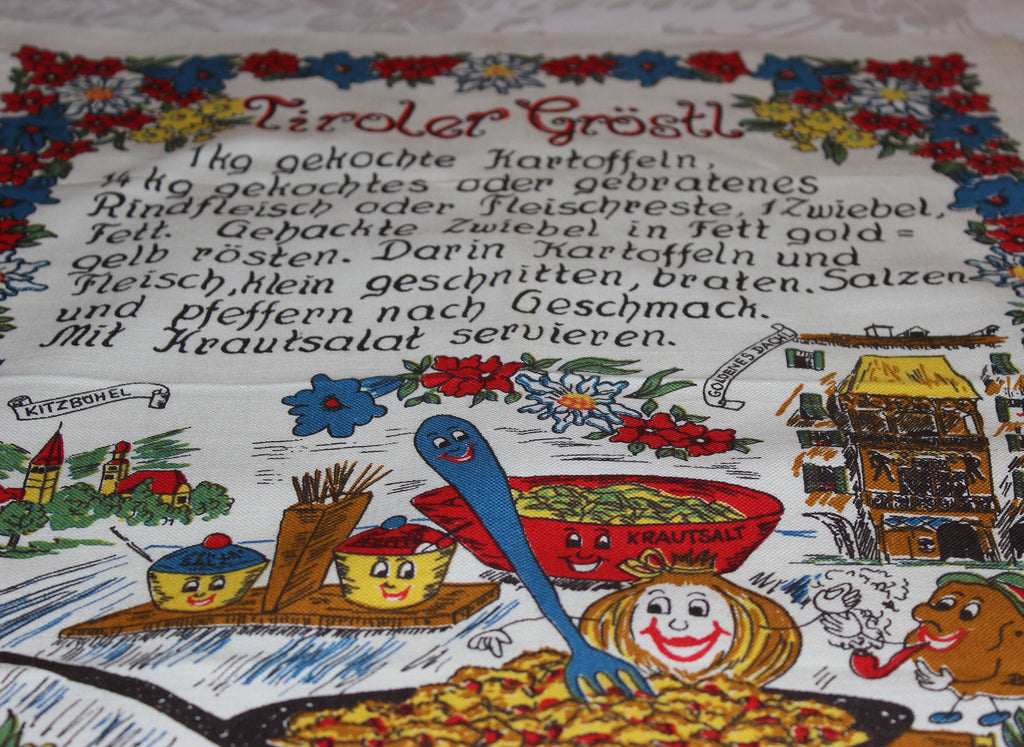 Tiroler Gröstl
1 kg gekochte Kartoffeln,
1/4 kg gekochtes oder gebratenes
Rindfleisch oder Fleischreste, 1 Zwiebel,
Fett. Gehackte Zwiebel in Fett gold=
gelb rösten. Darin Kartoffeln und
Fleisch, klein geschnitten, braten. Salzen
und pfeffern nach Geschmack.
Mit Krautsalat servieren.
KITZBÜHEL
GOLDENES DACHL
KRAUTSALT
SALZ